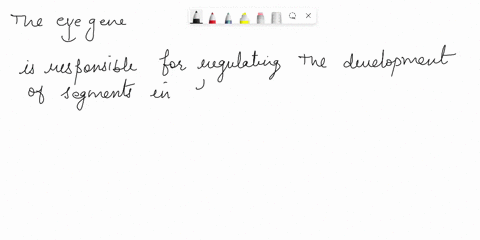 The eye gene
is responsible for regulating the development
of segments in